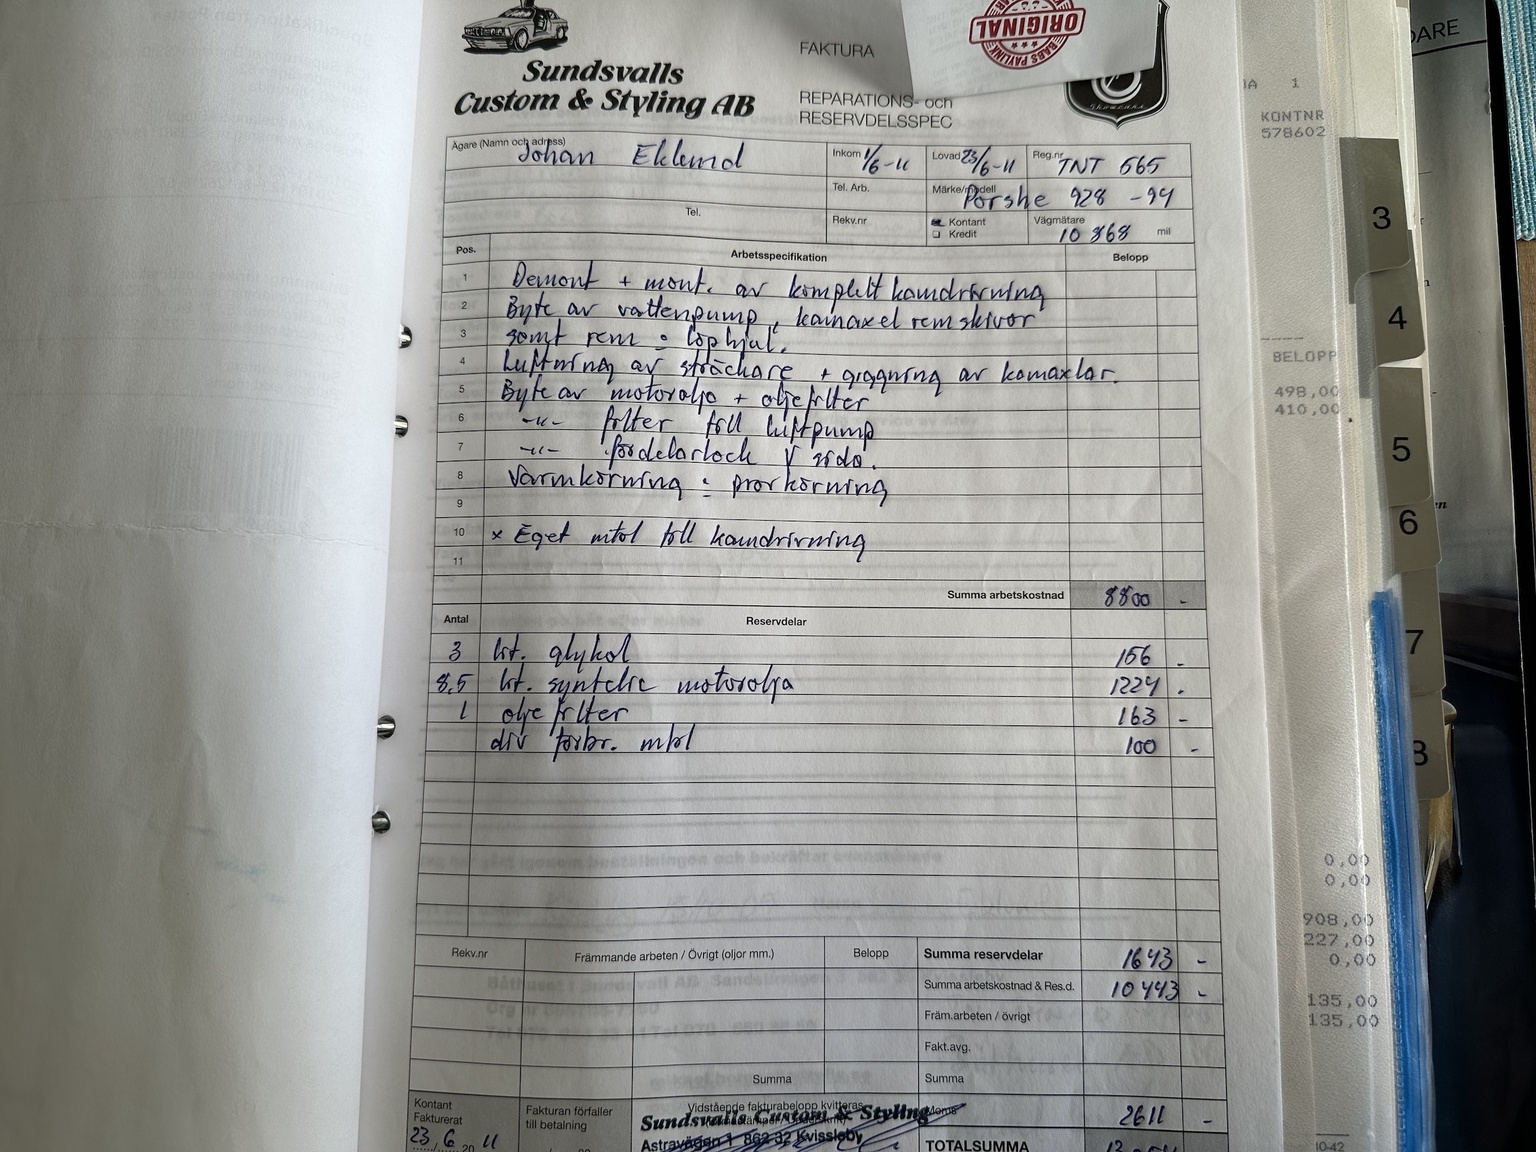 Sundsvalls
Custom & Styling AB
FAKTURA
REPARATIONS- och
RESERVDELSSPEC
ORIGINAL
BABS PAYLINK
Showcars
Ägare (Namn och adress)
Johan Eklund
Inkom 1/6-11
Lovad 23/6-11
Reg.nr TNT 565
Tel. Arb.
Märke/modell Porshe 928 -94
Tel.
Rekv.nr
Kontant
Kredit
Vägmätare 10 868 mil
Pos. Arbetsspecifikation Belopp
1 Demont + mont. av komplett kamdrivning
2 Byte av vattenpump, kamaxel remskivor
3 samt rem : löphjul.
4 Luftning av sträckare + gragning av kamaxlar.
5 Byte av motorolja + oljefilter
6 -"- filter till luftpump
7 -"- fördelarlock V sida.
8 Varmkörning : provkörning
9
10 x Eget mtrl till kamdrivning
11
Summa arbetskostnad 8800 -
Antal Reservdelar
3 lit. glykol 156 -
8,5 lit. syntetic motorolja 1224 -
1 oljefilter 163 -
div förbr. mtrl 100 -
Rekv.nr Främmande arbeten / Övrigt (oljor mm.) Belopp Summa reservdelar 1643 -
Summa arbetskostnad & Res.d. 10443 -
Främ.arbeten / övrigt
Fakt.avg.
Summa Summa
Kontant
Fakturerat
23,6 20 11
Fakturan förfaller
till betalning
Vidstående fakturabelopp kvitteras
Sundsvalls Custom & Styling
Astravägen 1 862 32 Kvissleby
Moms 2611 -
TOTALSUMMA
1
KONTNR
578602
BELOPP
498,00
410,00
0,00
0,00
908,00
227,00
0,00
135,00
135,00
10-42
3
4
5
6
7
8